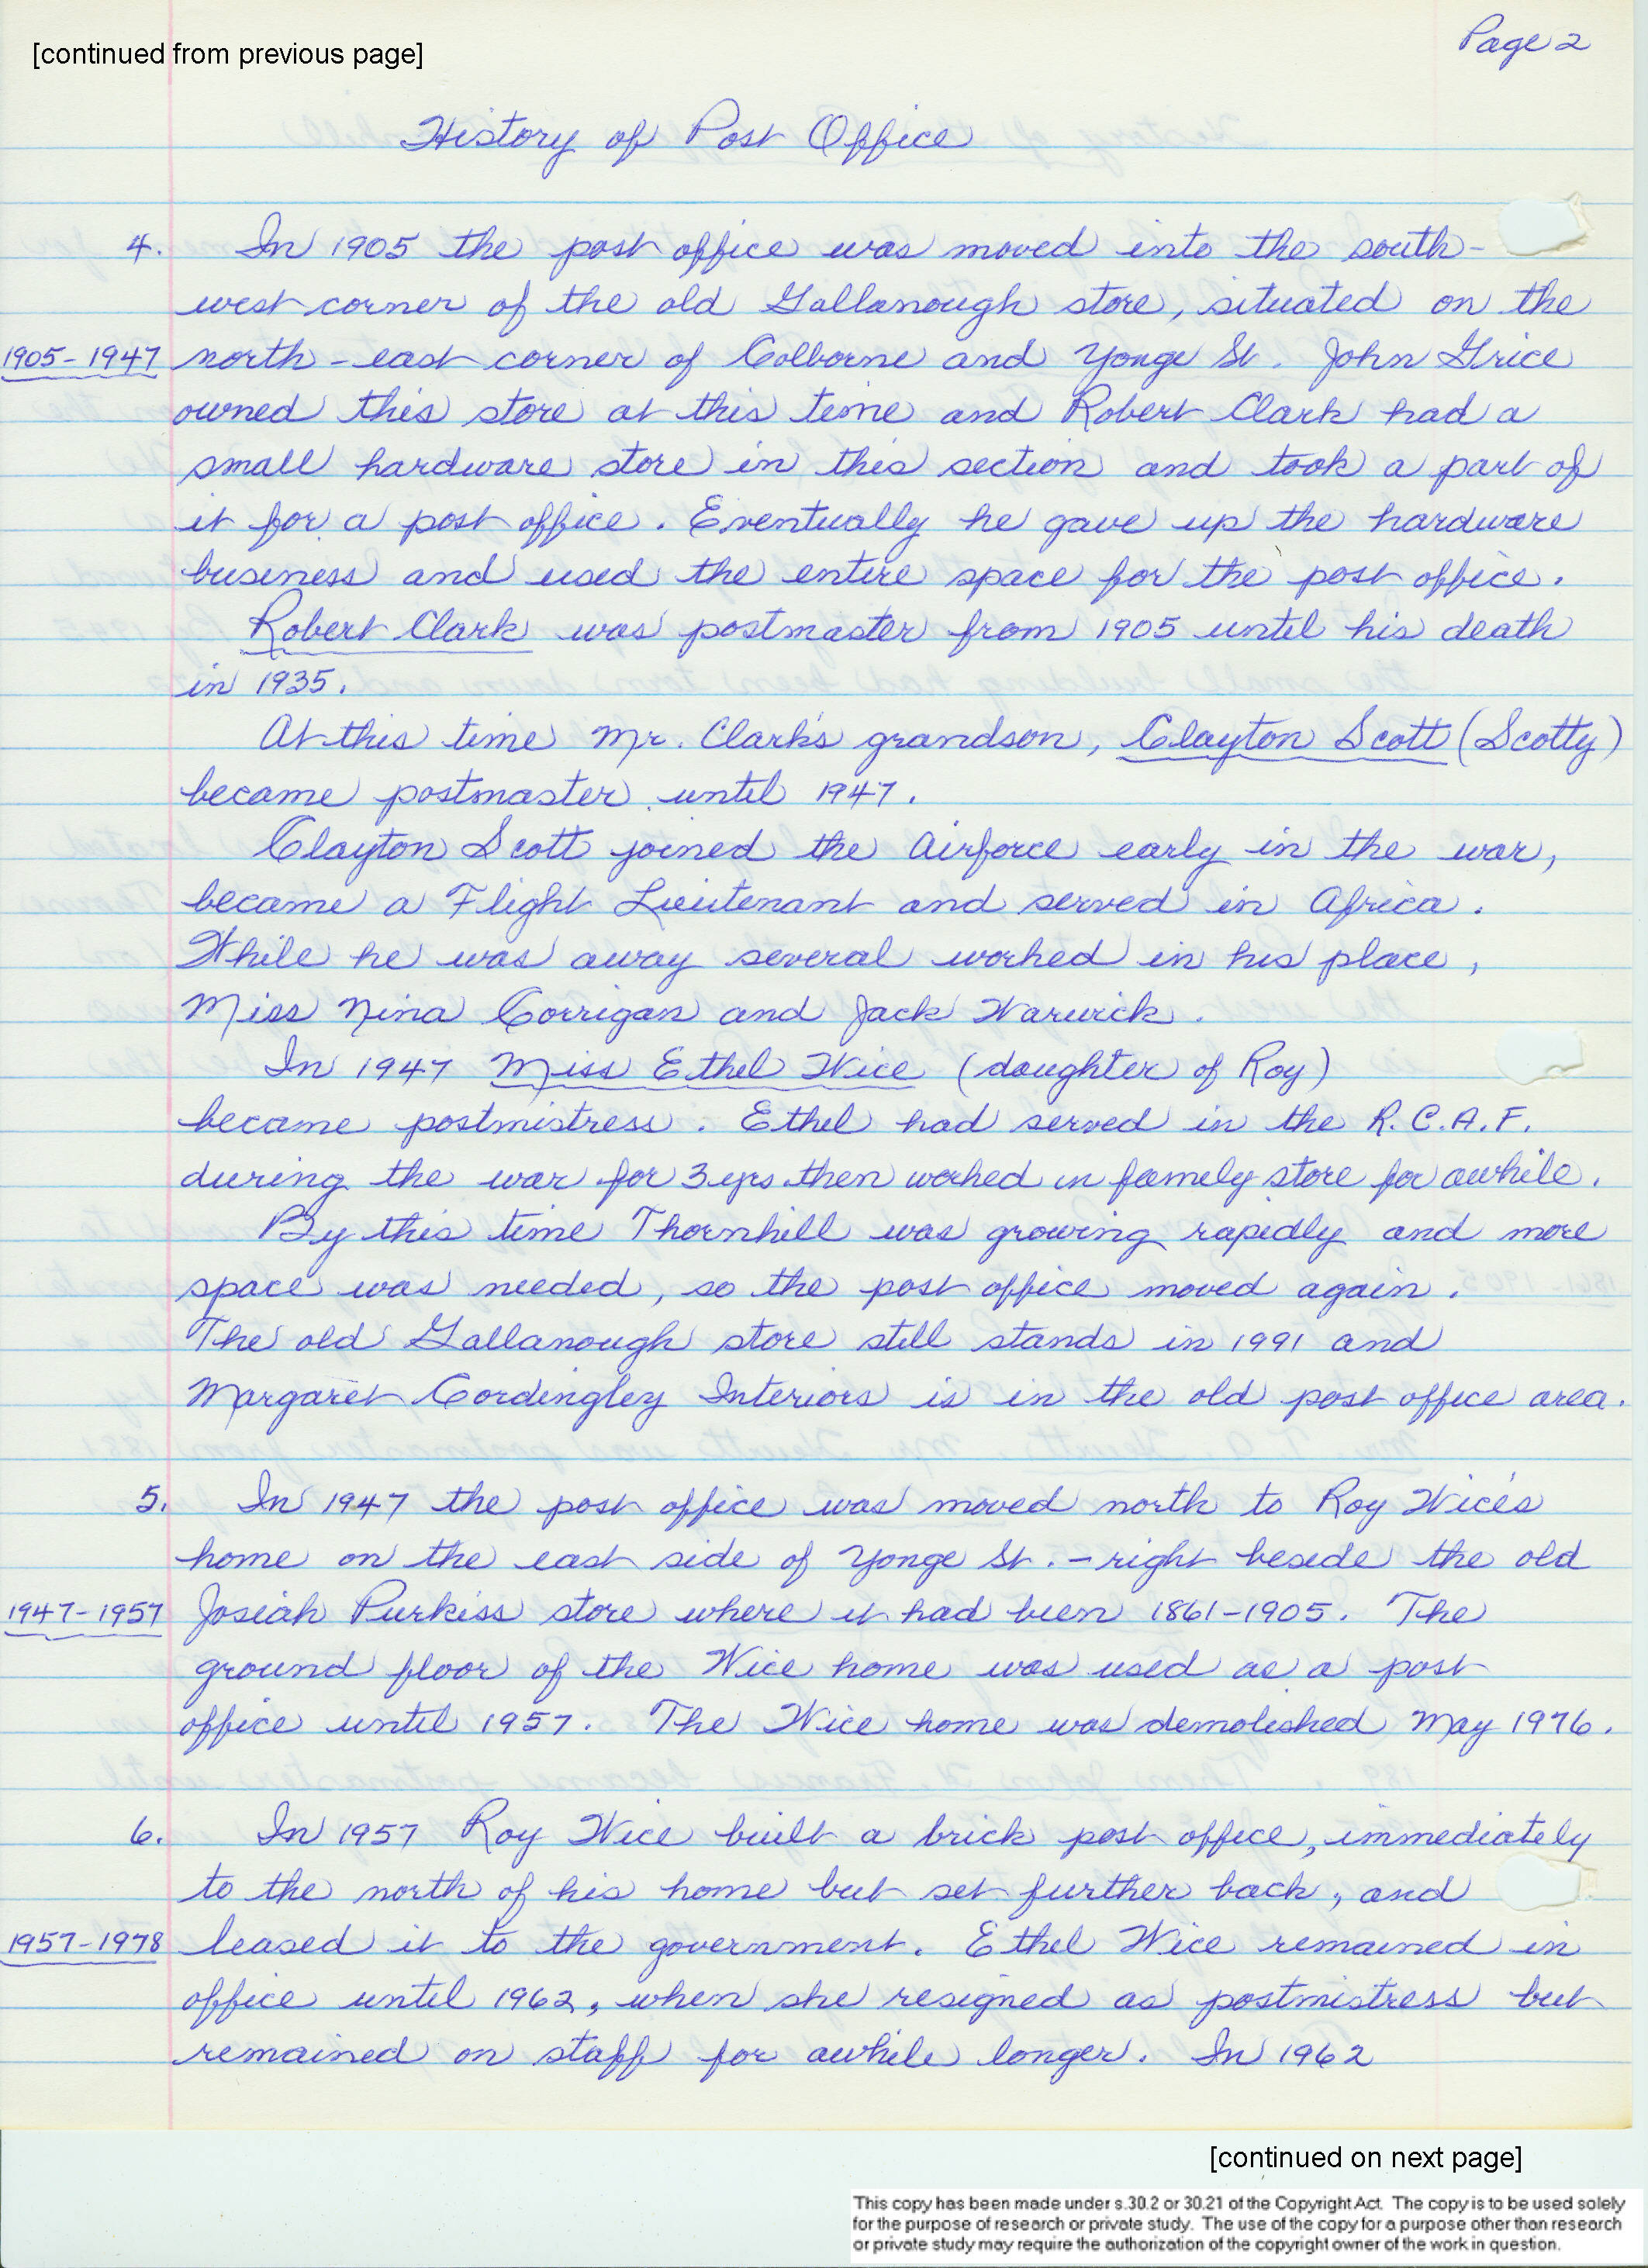 [continued from previous page]
Page 2
History of Post Office
4. In 1905 the post office was moved into the south-
west corner of the old Gallanough store, situated on the
1905-1947 north-east corner of Colborne and Yonge St. John Grice
owned this store at this time and Robert Clark had a
small hardware store in this section and took a part of
it for a post office. Eventually he gave up the hardware
business and used the entire space for the post office.
Robert Clark was postmaster from 1905 until his death
in 1935.
At this time Mr. Clark's grandson, Clayton Scott (Scotty)
became postmaster until 1947.
Clayton Scott joined the Airforce early in the war,
became a Flight Lieutenant and served in Africa.
While he was away several worked in his place,
Miss Nina Corrigan and Jack Warwick.
In 1947 Miss Ethel Wice (daughter of Roy)
became postmistress. Ethel had served in the R.C.A.F.
during the war for 3 yrs. then worked in family store for awhile.
By this time Thornhill was growing rapidly and more
space was needed, so the post office moved again.
The old Gallanough store still stands in 1991 and
Margaret Cordingley Interiors is in the old post office area.
5. In 1947 the post office was moved north to Roy Wice's
home on the east side of Yonge St. - right beside the old
1947-1957 Josiah Purkiss store where it had been 1861-1905. The
ground floor of the Wice home was used as a post
office until 1957. The Wice home was demolished May 1976.
6. In 1957 Roy Wice built a brick post office, immediately
to the north of his home but set further back, and
1957-1978 leased it to the government. Ethel Wice remained in
office until 1962, when she resigned as postmistress but
remained on staff for awhile longer. In 1962
[continued on next page]
This copy has been made under s.30.2 or 30.21 of the Copyright Act. The copy is to be used solely
for the purpose of research or private study. The use of the copy for a purpose other than research
or private study may require the authorization of the copyright owner of the work in question.